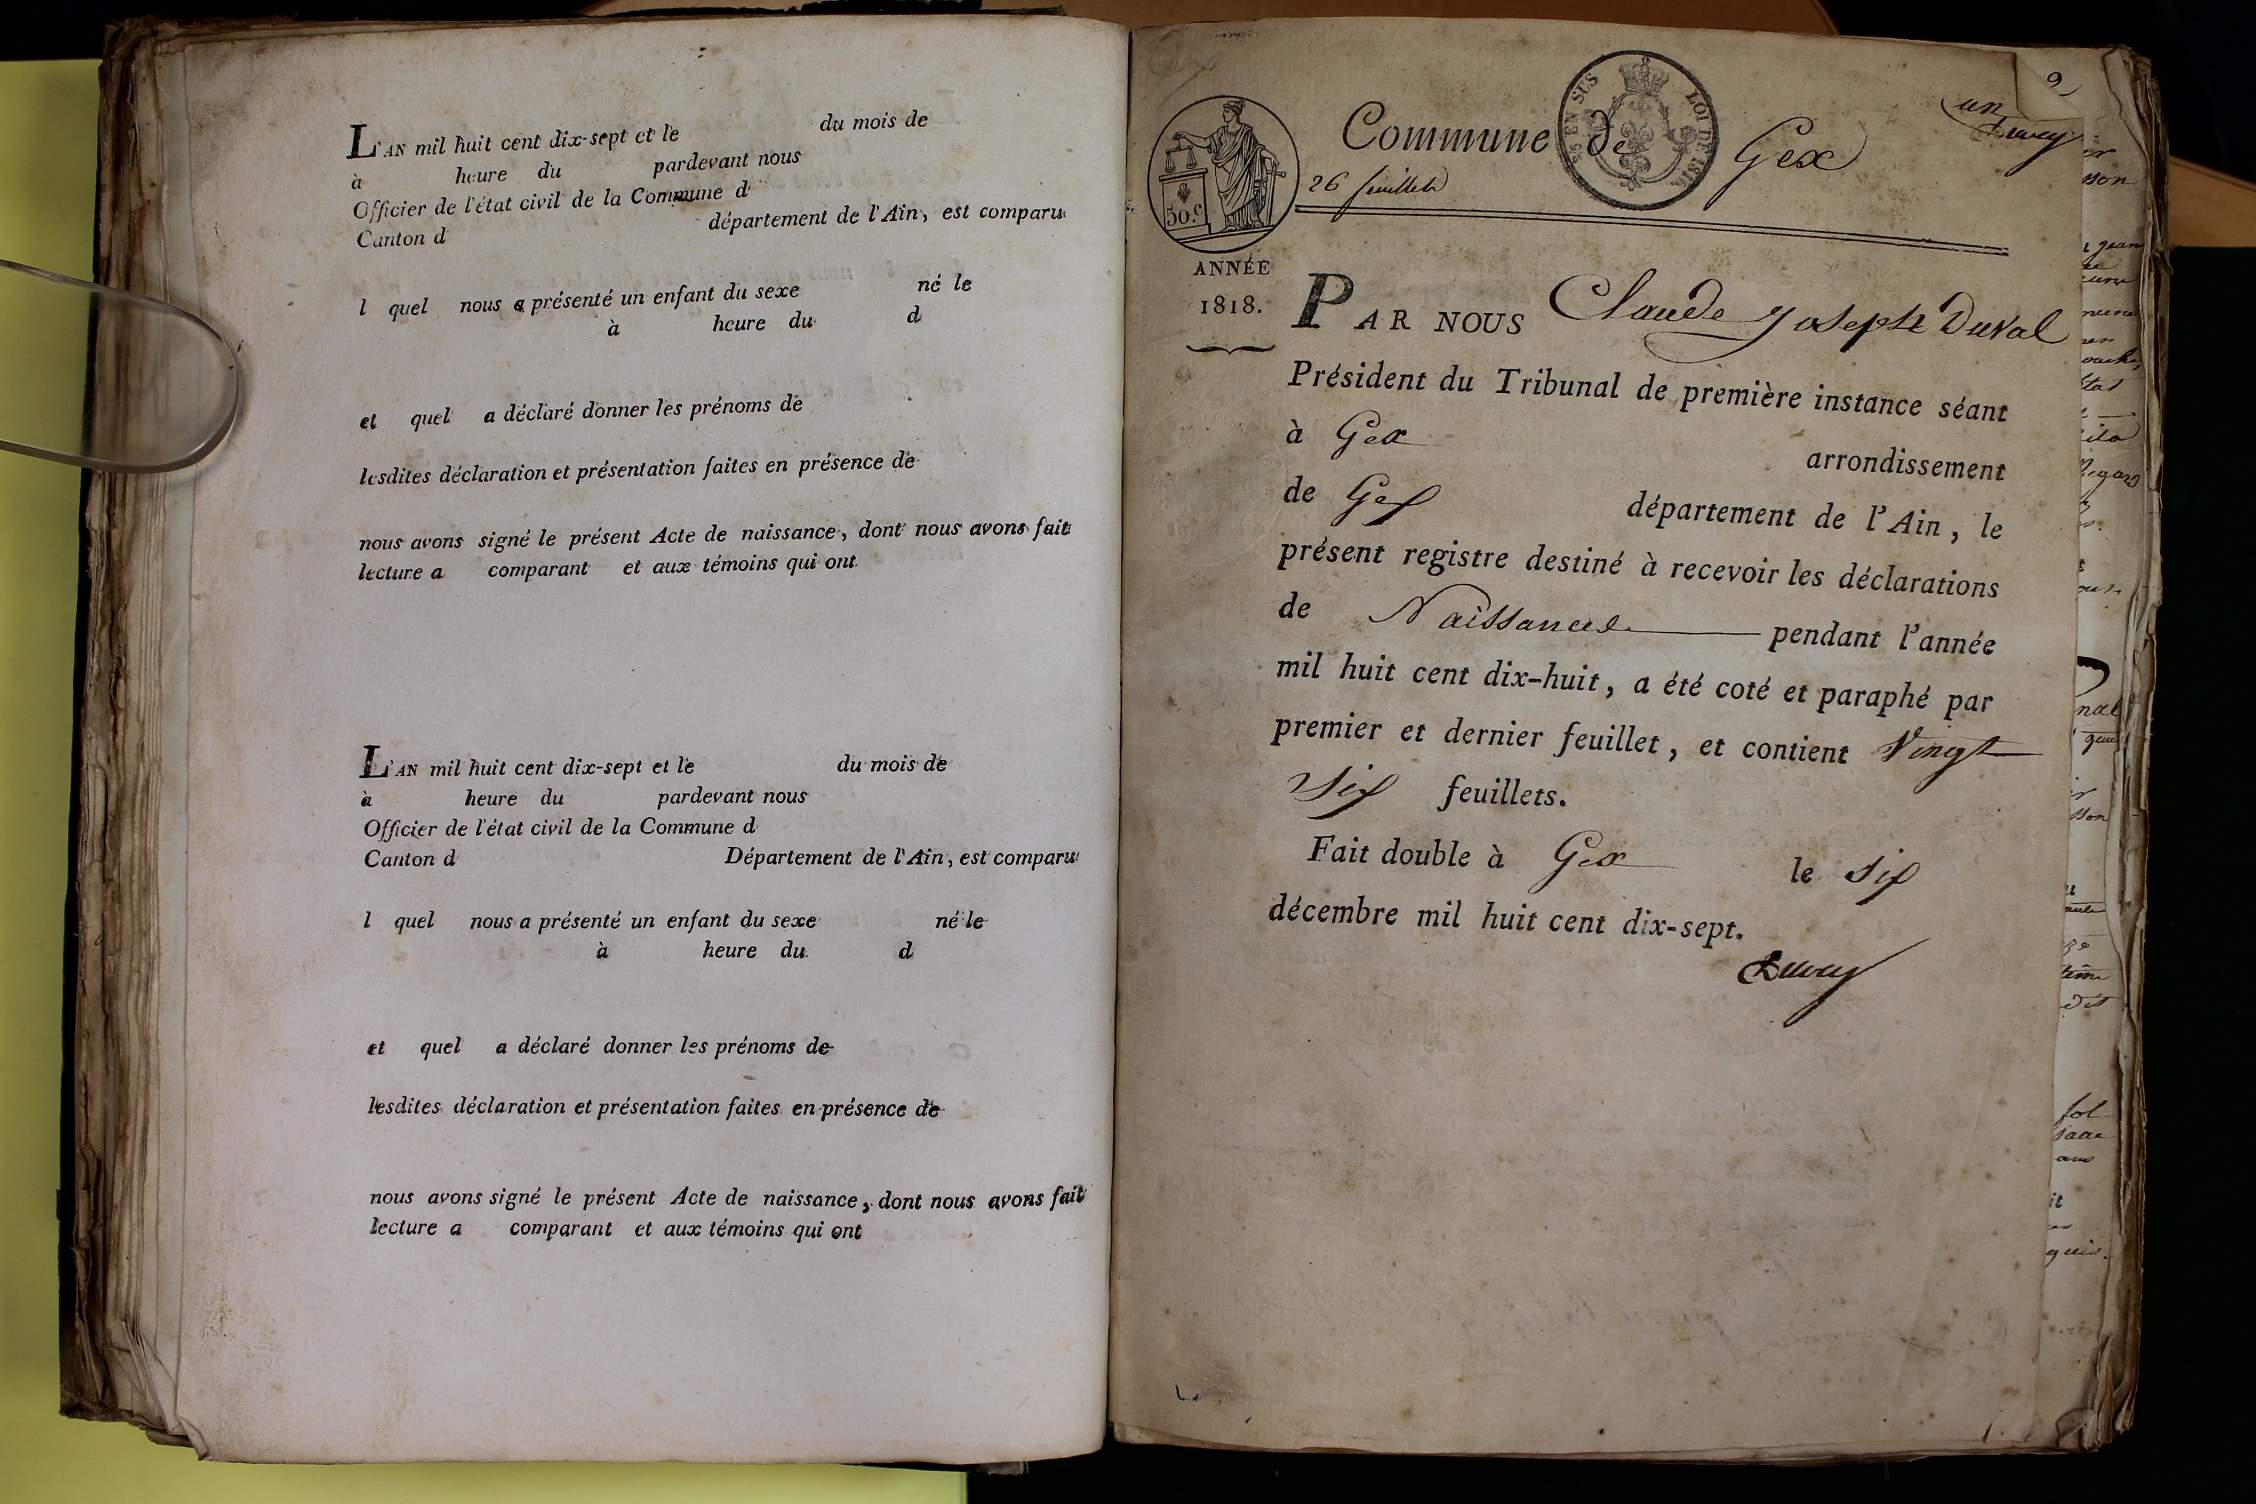 L'AN mil huit cent dix-sept et le du mois de
à heure du pardevant nous
Officier de l'état civil de la Commune d
Canton d département de l'Ain, est comparu
l quel nous a présenté un enfant du sexe né le
à heure du d
et quel a déclaré donner les prénoms de
lesdites déclaration et présentation faites en présence de
nous avons signé le présent Acte de naissance, dont nous avons fait
lecture a comparant et aux témoins qui ont
L'AN mil huit cent dix-sept et le du mois de
à heure du pardevant nous
Officier de l'état civil de la Commune d
Canton d Département de l'Ain, est comparu
l quel nous a présenté un enfant du sexe né le
à heure du d
et quel a déclaré donner les prénoms de
lesdites déclaration et présentation faites en présence de
nous avons signé le présent Acte de naissance, dont nous avons fait
lecture a comparant et aux témoins qui ont
un
Commune de Gex
25 EN SUS LOI DE 1816
26 feuillets
50.c
ANNÉE
1818.
PAR NOUS Claude Joseph Duval
Président du Tribunal de première instance séant
à Gex arrondissement
de Gex département de l'Ain, le
présent registre destiné à recevoir les déclarations
de Naissances pendant l'année
mil huit cent dix-huit, a été coté et paraphé par
premier et dernier feuillet, et contient Vingt
Six feuillets.
Fait double à Gex le Six
décembre mil huit cent dix-sept.